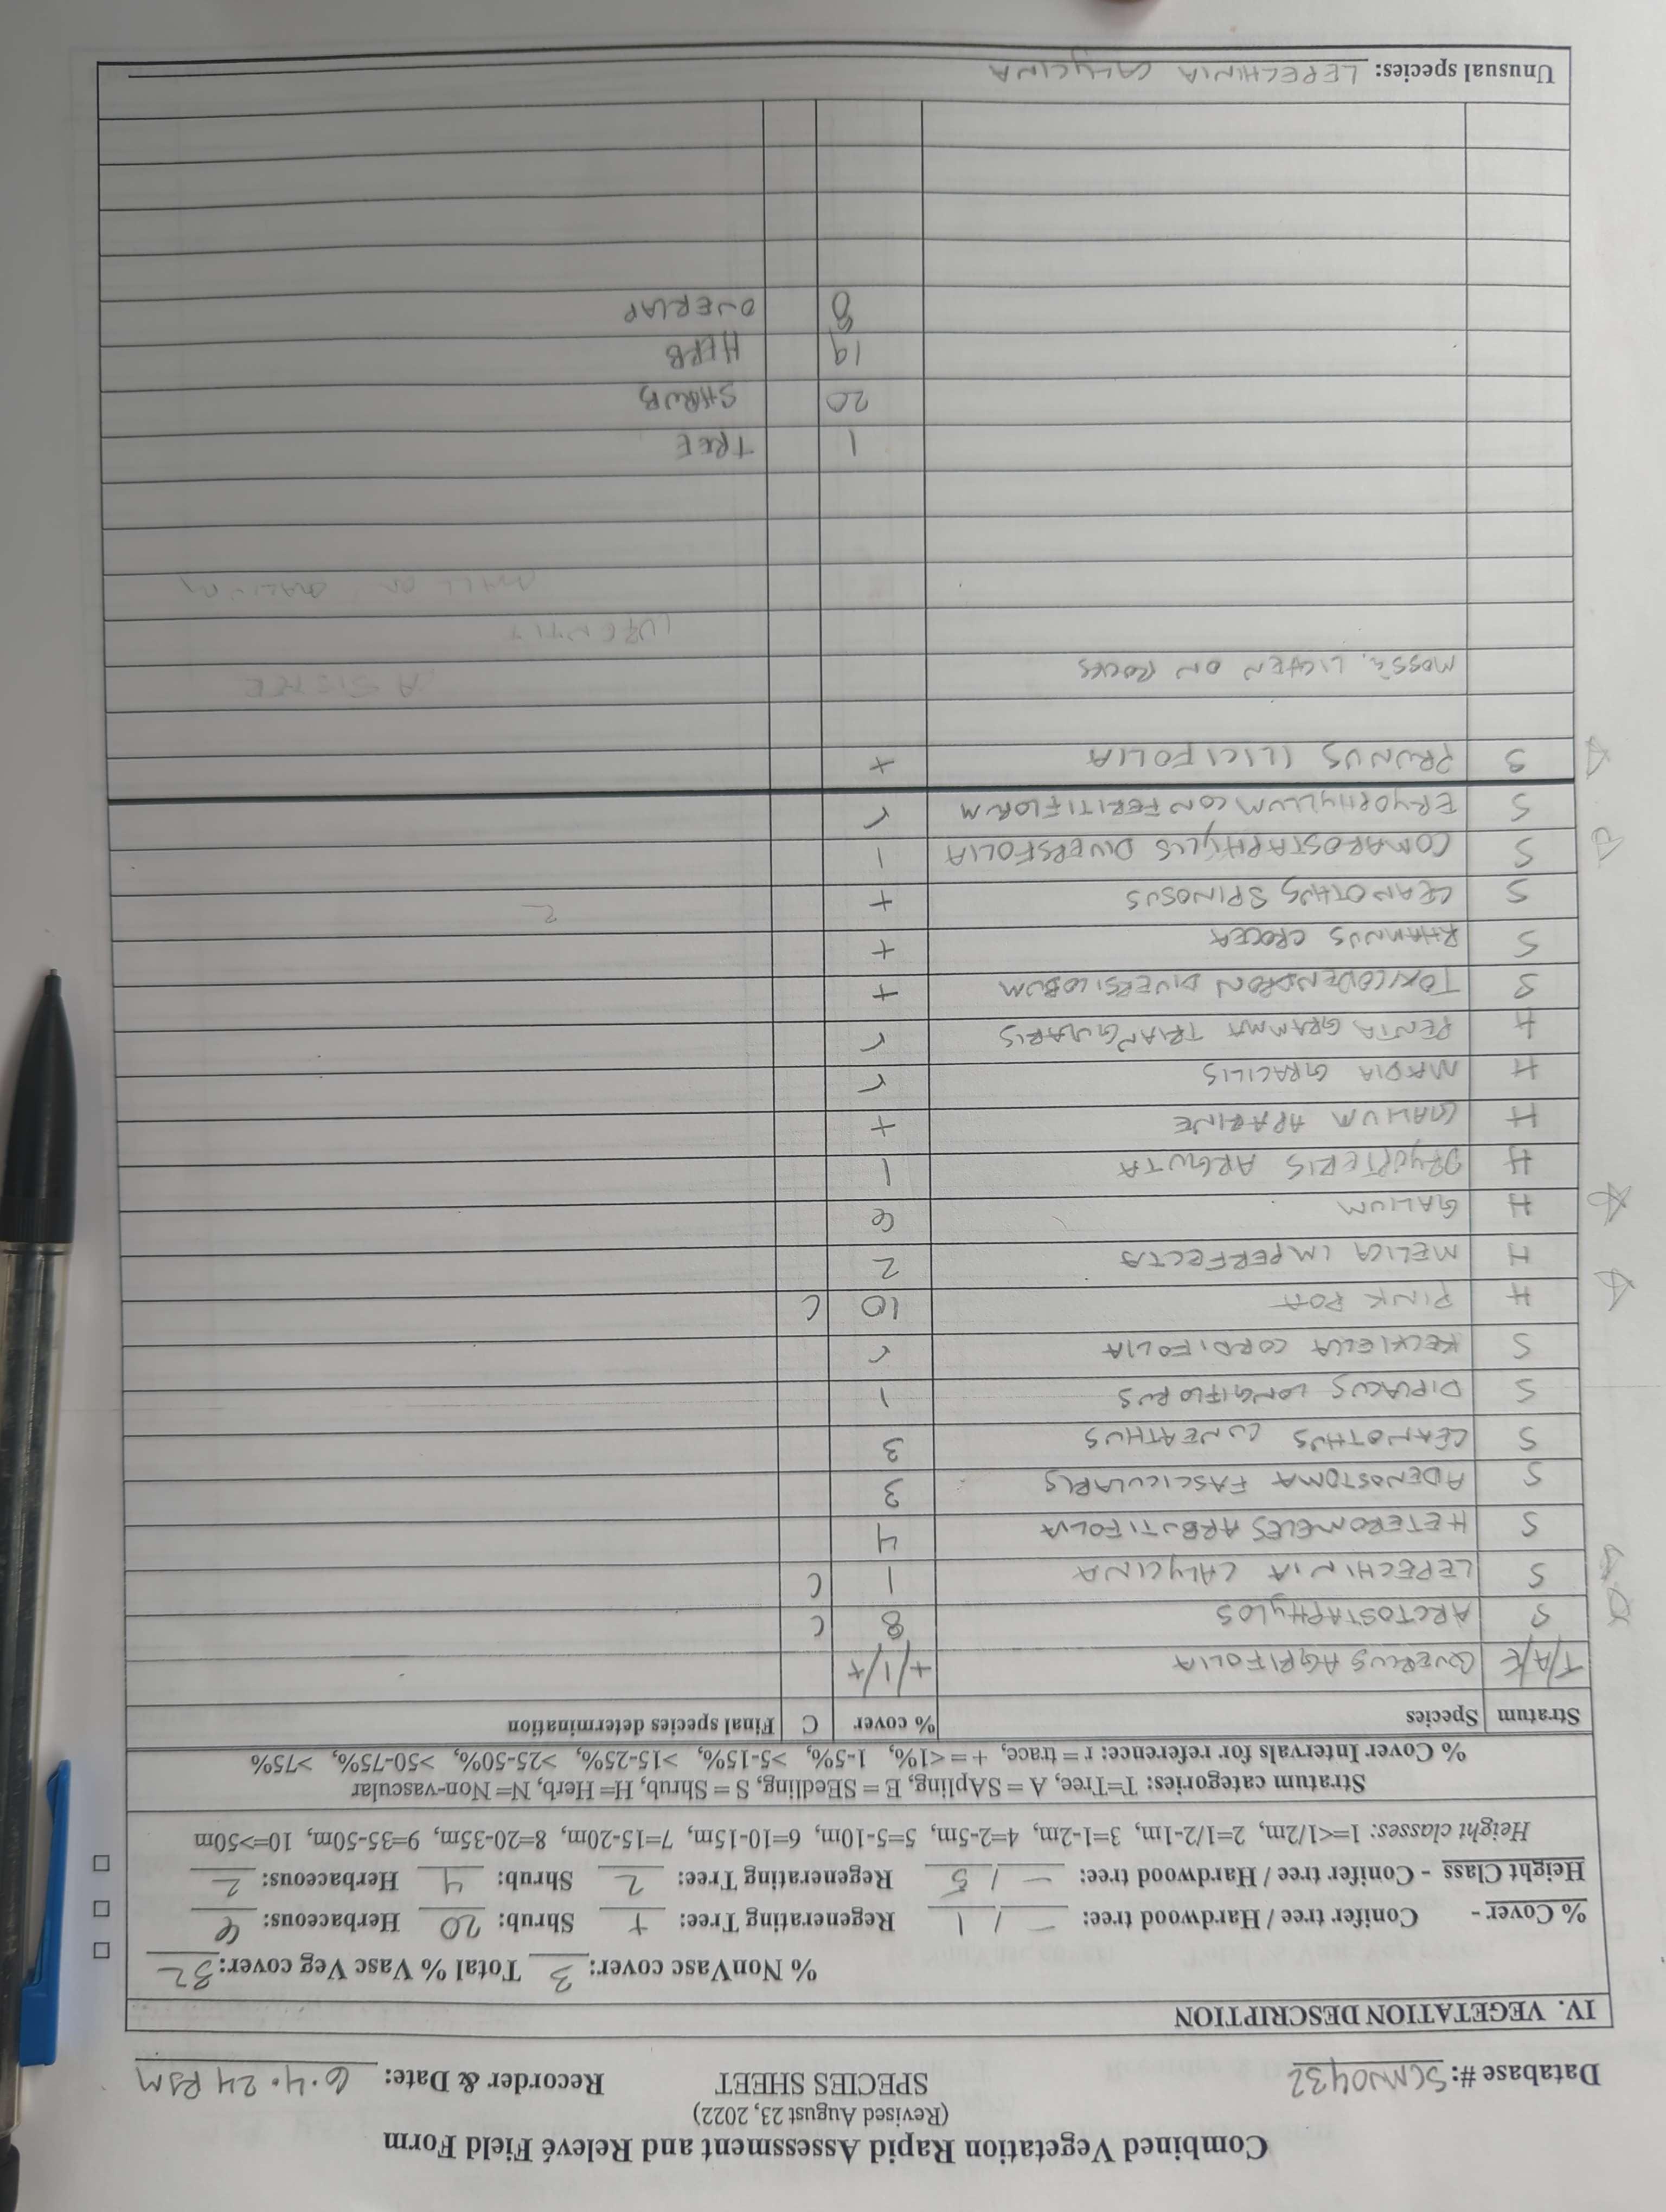 Combined Vegetation Rapid Assessment and Relevé Field Form
(Revised August 23, 2022)
SPECIES SHEET
Database #: SCMN0432 Recorder & Date: 6.4.24 RSM
IV. VEGETATION DESCRIPTION
% NonVasc cover: 3 Total % Vasc Veg cover: 32
% Cover - Conifer tree / Hardwood tree: — / 1 Regenerating Tree: + Shrub: 20 Herbaceous:
Height Class - Conifer tree / Hardwood tree: — / 5 Regenerating Tree: 2 Shrub: 4 Herbaceous: 2
Height classes: 1=<1/2m, 2=1/2-1m, 3=1-2m, 4=2-5m, 5=5-10m, 6=10-15m, 7=15-20m, 8=20-35m, 9=35-50m, 10=>50m
Stratum categories: T=Tree, A = SApling, E = SEedling, S = Shrub, H= Herb, N= Non-vascular
% Cover Intervals for reference: r = trace, + = <1%, 1-5%, >5-15%, >15-25%, >25-50%, >50-75%, >75%
Stratum Species % cover C Final species determination
T/A/E QUERCUS AGRIFOLIA +/1/+
S ARCTOSTAPHYLOS 8 C
S LEPECHINIA CALYCINA 1 C
S HETEROMELES ARBUTIFOLIA 4
S ADENOSTOMA FASCICULARIS 3
S CEANOTHUS CUNEATHUS 3
S DIPLACUS LONGIFLORUS 1
S KECKIELLA CORDIFOLIA r
H PINK POA 10 C
H MELICA IMPERFECTA 2
H GALIUM 6
H DRYOPTERIS ARGUTA 1
H GALIUM APARINE +
H MADIA GRACILIS r
H PENTAGRAMMA TRIANGULARIS r
S TOXICODENDRON DIVERSILOBUM +
S RHAMNUS CROCEA +
S CEANOTHUS SPINOSUS +
S COMAROSTAPHYLIS DIVERSFOLIA 1
S ERYOPHYLLUM CONFERITIFLORUM r
S PRUNUS ILICIFOLIA +
MOSS & LICHEN ON ROCKS
1 TREE
20 SHRUB
19 HERB
8 OVERLAP
Unusual species: LEPECHINIA CALYCINA